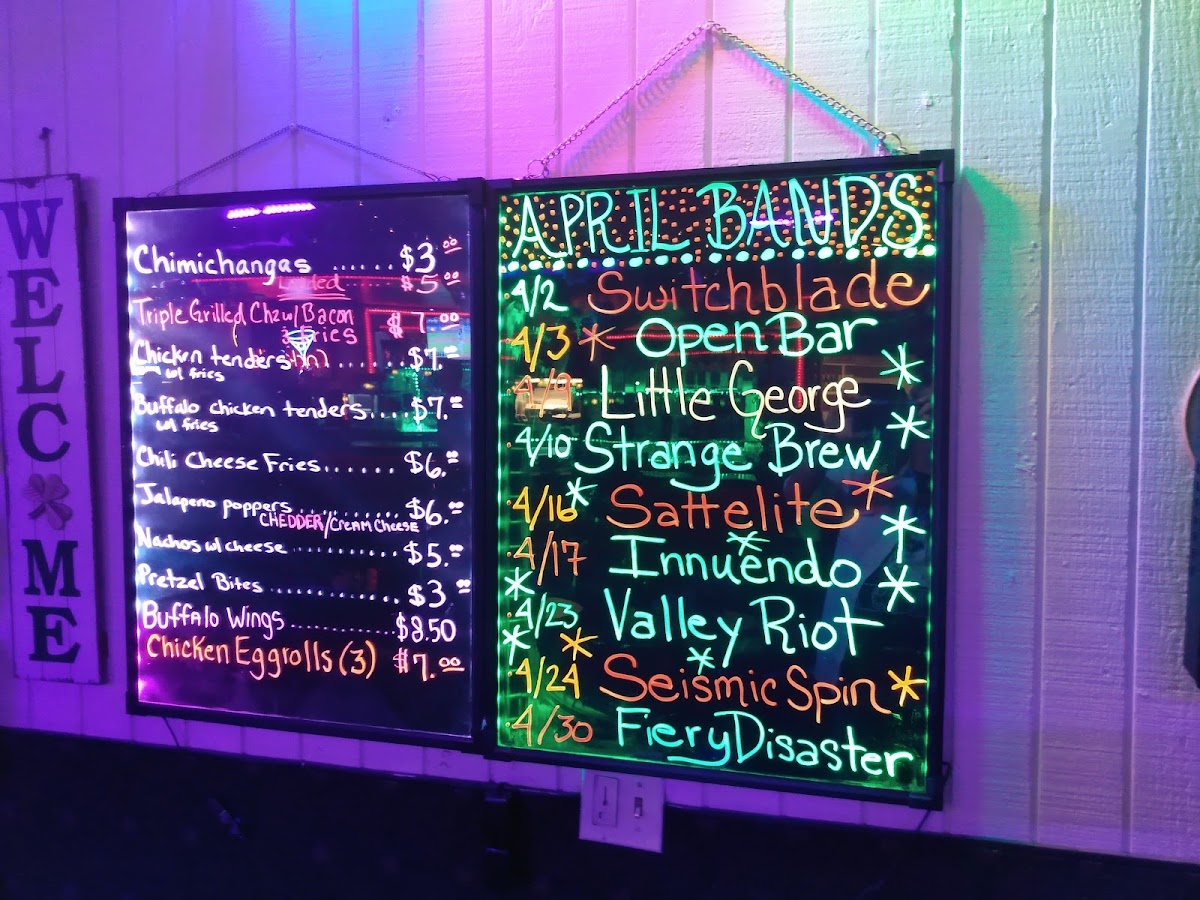 WELCOME
Chimichangas ...... $3.00
Loaded ..... $5.00
Triple Grilled Chz w/ Bacon
& Fries $7.00
Chicken tenders ....... $7.00
w/ fries
Buffalo chicken tenders.... $7.00
w/ fries
Chili Cheese Fries...... $6.00
Jalapeno poppers......... $6.00
CHEDDER/CREAM CHEESE
Nachos w/ cheese ........... $5.00
Pretzel Bites ............. $3.00
Buffalo Wings ............ $8.50
Chicken Eggrolls (3) $7.00
APRIL BANDS
4/2 Switchblade
4/3 Open Bar
4/9 Little George
4/10 Strange Brew
4/16 Sattelite
4/17 Innuendo
4/23 Valley Riot
4/24 Seismic Spin
4/30 Fiery Disaster